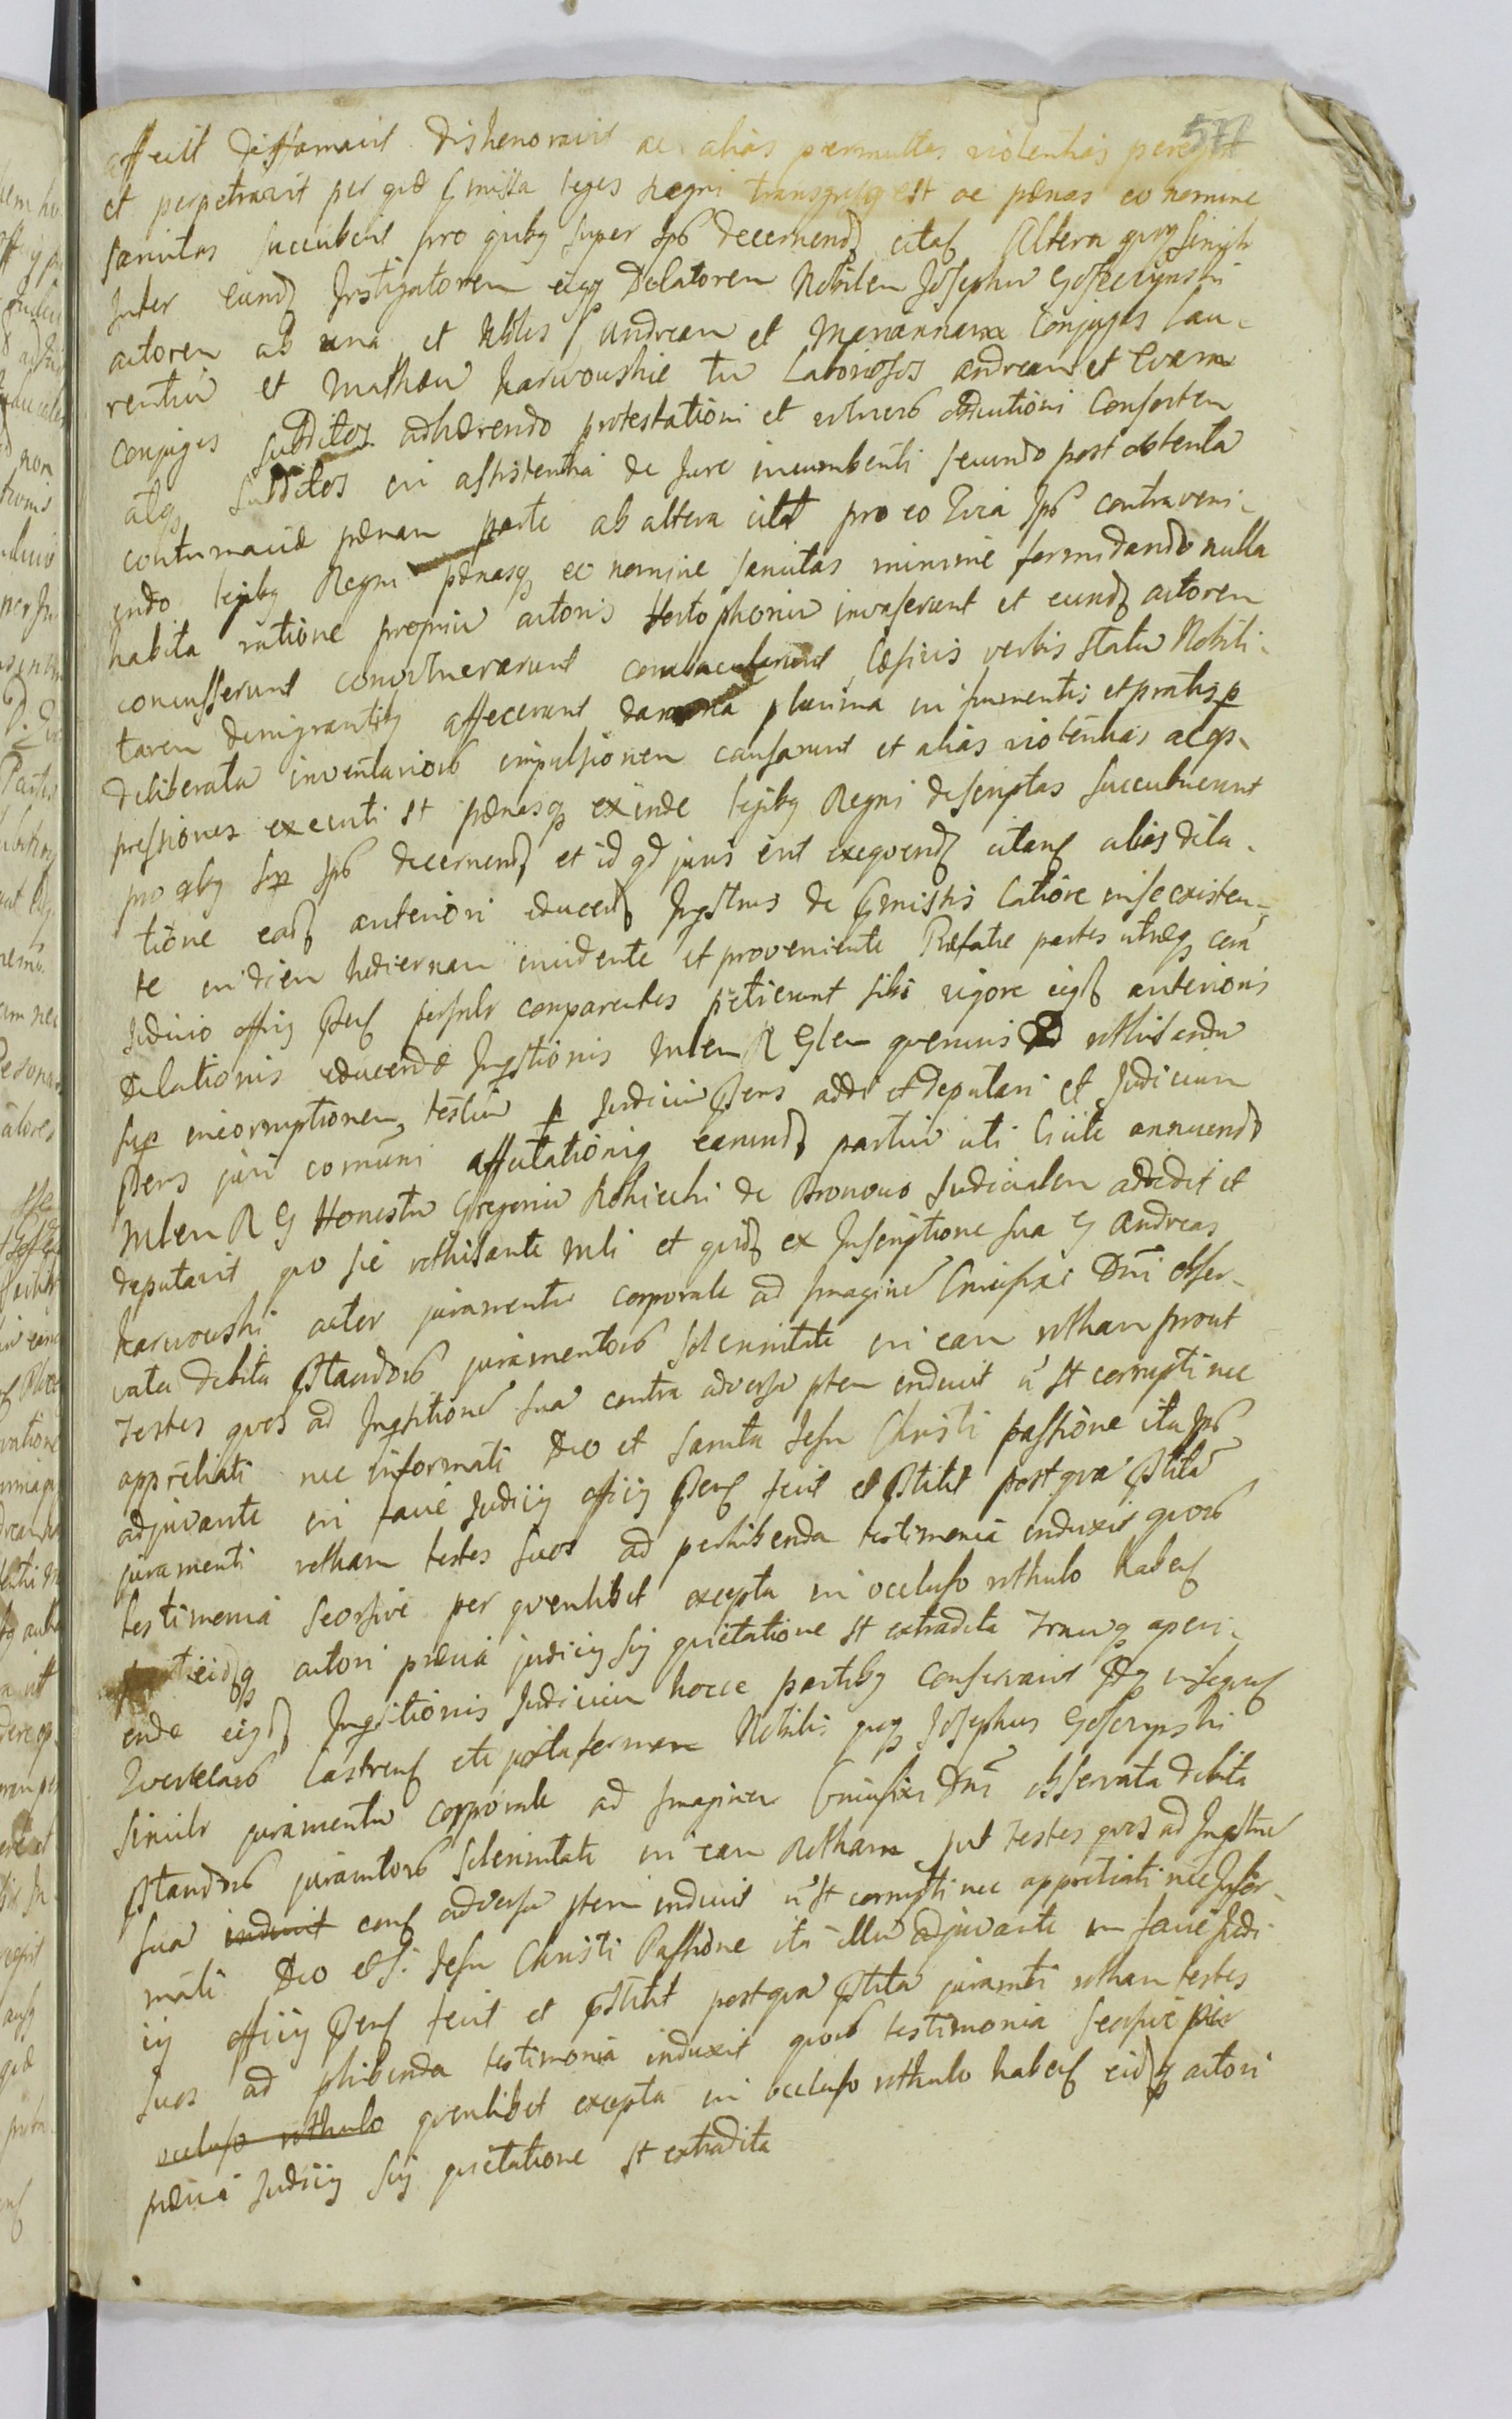 577
affecit diffamavit dishonoravit ac alias permultas violentias peregit
et perpetravit per quæ Gmissa leges Regni transgressq est ac pænas eo nomine
sancitas succubuit pro quibq super Ips decernend citat Altera quoq simplr
Inter eund Instigatorem eiqq Delatorem Nobilem Josephu Goseczynski
actorem ab una et Nbles Andream et Mariannam Conjuges Lau-
rentiu et Mathæu Karwouskie tu Laboriosos Andream et Evam
Conjuges subditos adhærendo protestationi et vulneru obductioni Consortem
atq subditos in assistentia de Jure incumbenti secundo post obtenta
contumaciæ pænam parte ab altera citat pro eo Quia Ips contraveni-
endo legibq Regni pænasq eo nomine sancitas minime formidando nulla
habita ratione propriu actoris Hortophoriu invaserunt et eund actorem
concusserunt convulnerarunt læsivis verbis statu Nobili-
tarem denigrantibq affecerunt damna plurima in frumentis et pratis p
deliberata inventarioru impulsionem causarunt et alias violentias acqp-
pressiones executi st pænasq exinde legibq Regni descriptas succubuerunt
pro qbq sup Ips decernend et id qd juris erit exequend citant alias dila-
tione ead anteriori educend Inqstnis de Gmissis latiore in se existen-
te in diem hodiernam incidente et proveniente Præfatæ partes utræq cora
Judicio officy psens persnlr comparentes petierunt sibi vigore eiqd anterioris
Delationis educendæ Inqstionis Mlem R Glem quemvis ad rothisandu
sup incorruptionem testiu p Judiciu psens addi et deputari et Judicium
psens juri comuni affectationiq earund partiu uti licite annuendo
Mlem R G Honestu Gregoriu Rohicchi de Bronowo Judicialem addidit et
deputavit quo sic rothisante Mli et quid ex Inscriptione sua G Andreas
Karwouski actor juramentu corporale ad Imagine Crucifixi Dni obser-
vata debita pstandoru juramentoru solennitate in eam rotham prout
Testes quos ad Inqstione sua contra adversa ptem induxit n st corrupti nec
appretiati nec informati Deo et Sancta Jesu Christi passione ita Ips
adjuvante in facie Judicy officy psens fecit et pstitit post qua pstita
juramenti rotham testes suos ad perhibenda testimonia induxit quoru
testimonia seorsive per quemlibet excepta in occluso rothulo habens
eidq actori prævia judicy sui quietatione st extradita Trnuq aperi-
endæ eiqd Inqstionis Judicium hocce partibq conservavit pdq insequens
Querelaru Castrens etc juxta formam Nobilis quoq Josephus Goseczynski
similr juramentu corporale ad Imaginem Crucifixi Dni observata debita
pstandoru juramtoru solennitate in eam Rotham put testes quos ad Inqstne
sua induxit cont adversa ptem induxit n st corrupti nec appretiati nec Infor-
mati Deo et S. Jesu Christi Passione ita illu adjuvante in facie Judi
cy officy psens fecit et pstitit post qua pstita juramti rotham testes
suos ad phibenda testimonia induxit quoru testimonia seorsive per
occluso rothulo quemlibet excepta in occluso rothulo habens eidq actori
prævia Judicy sui quietatione st extradita